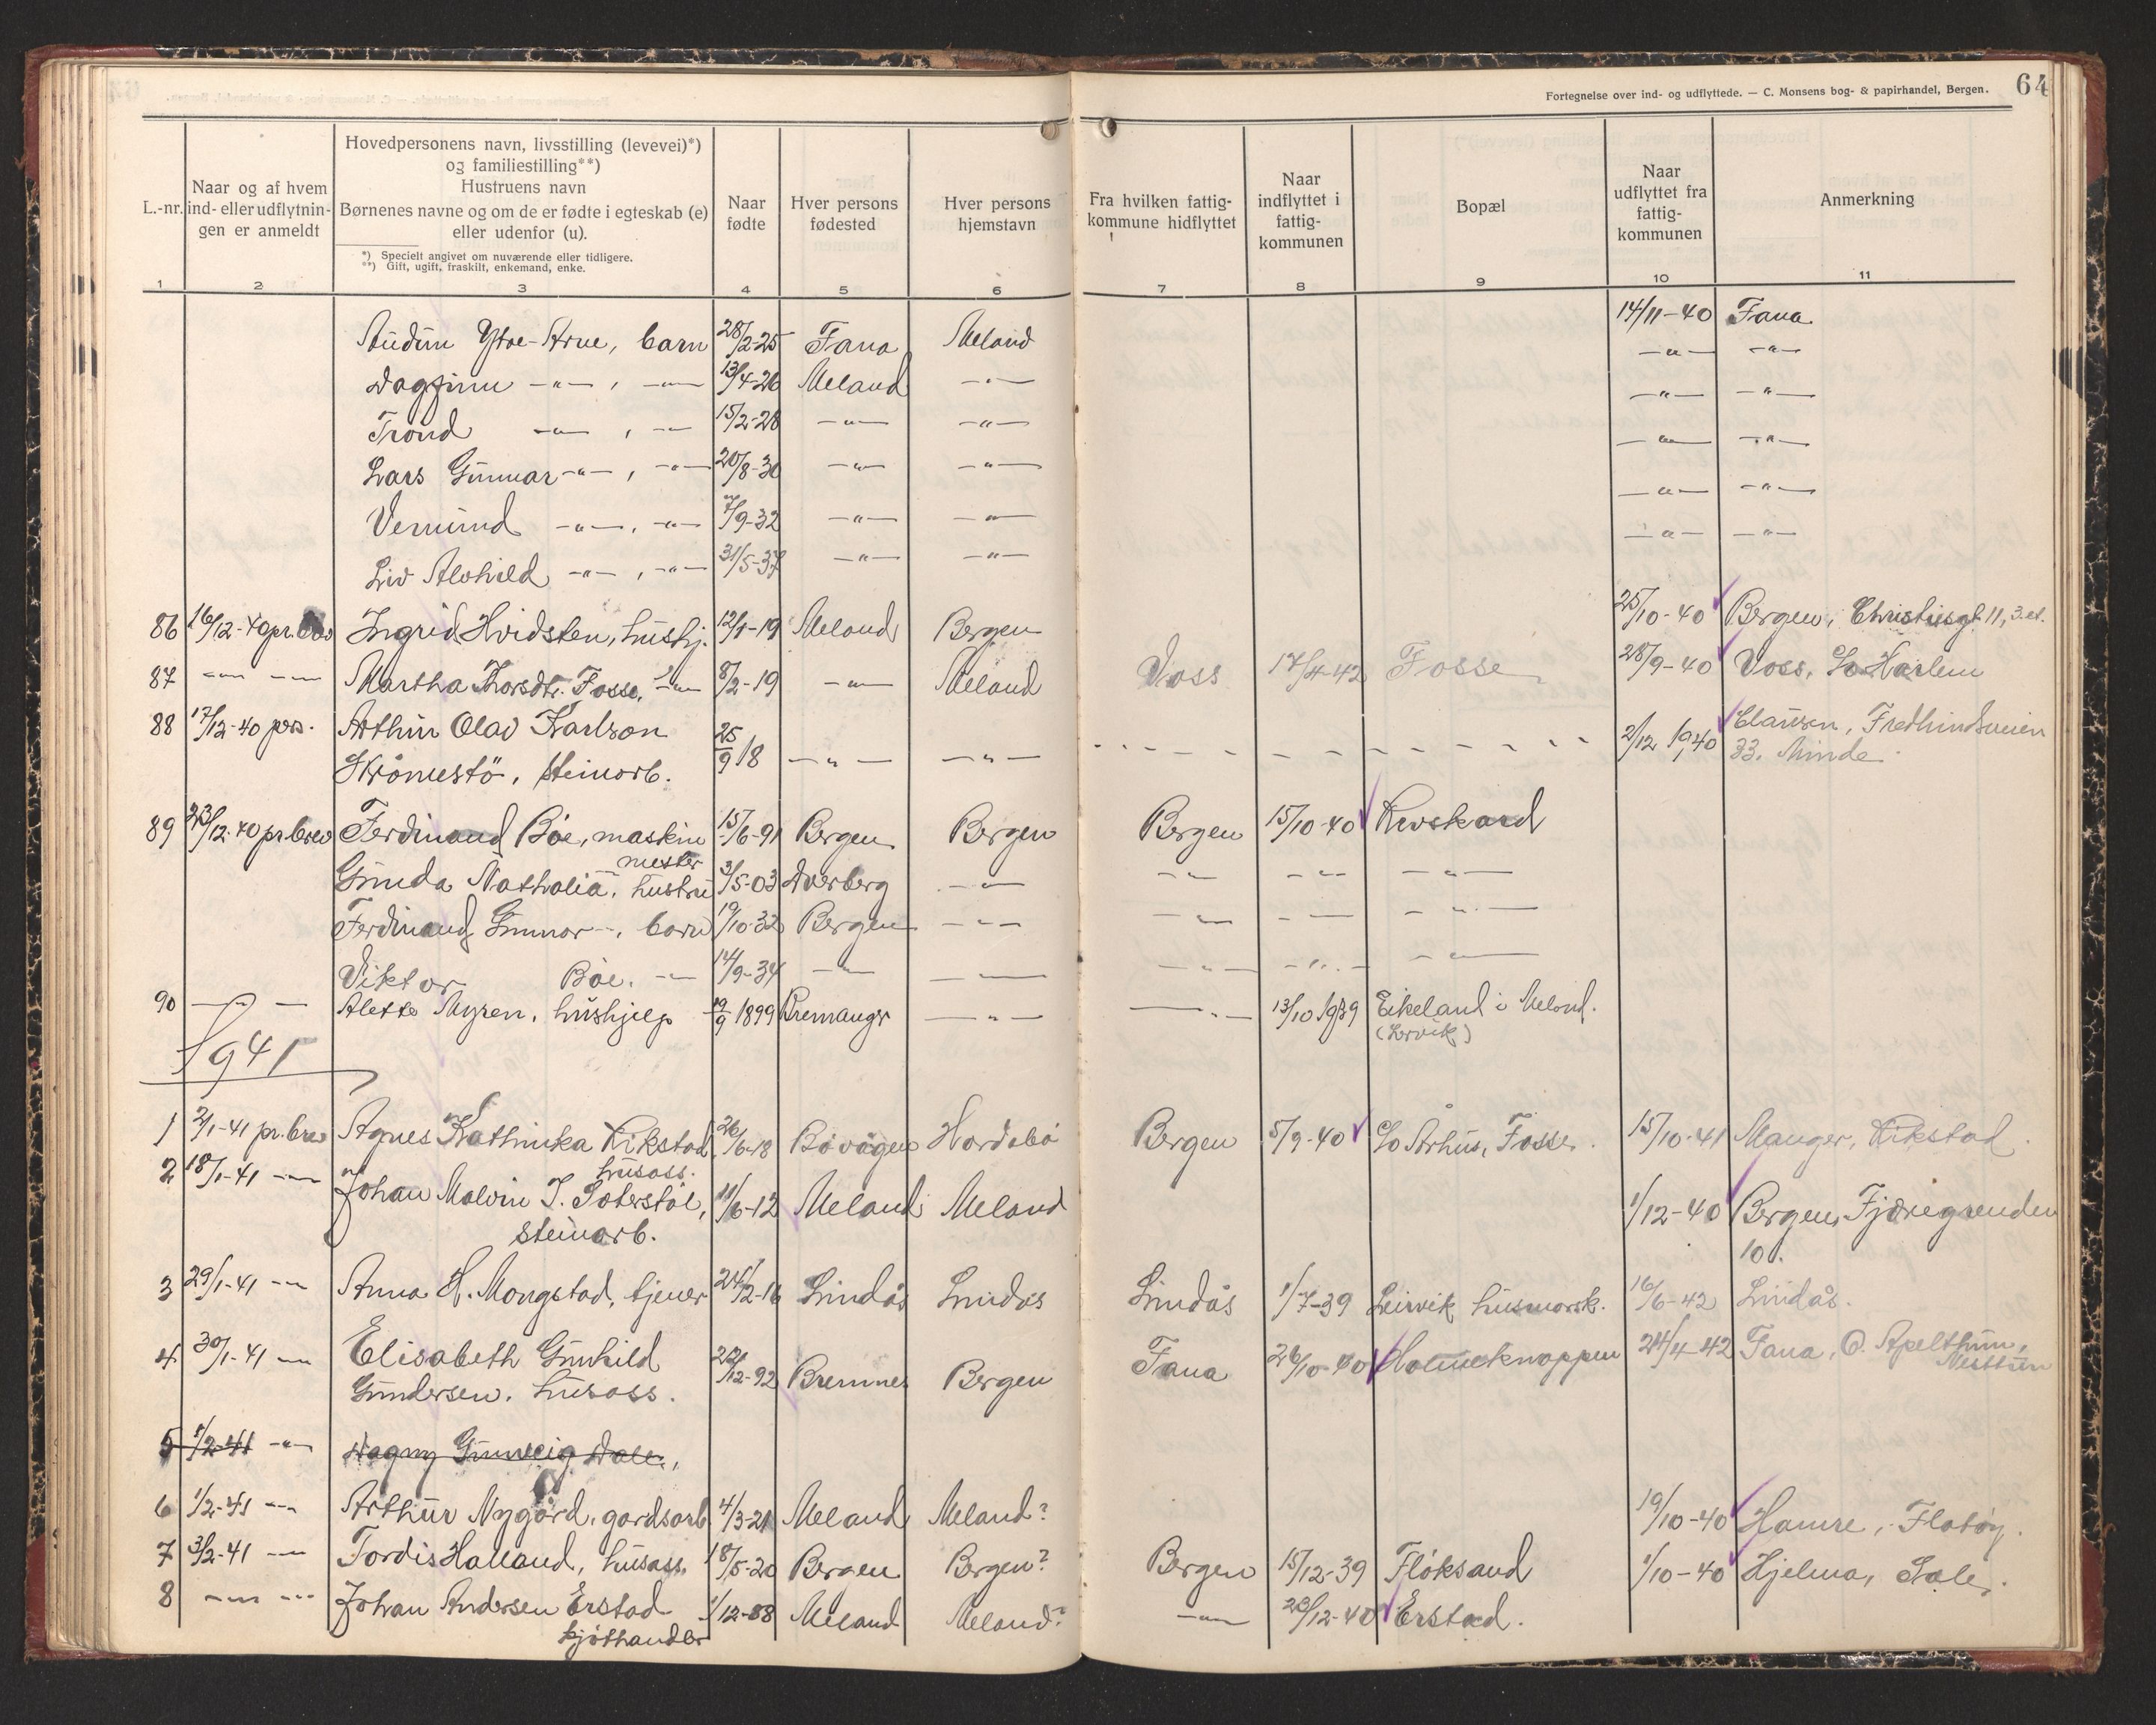 Fortegnelse over ind- og udflyttede. — C. Monsens bog- & papirhandel, Bergen. 64
L.-nr.
Naar og af hvem ind- eller udflytnin-gen er anmeldt
Hovedpersonens navn, livsstilling (levevei)*)
og familiestilling**)
Hustruens navn
Børnenes navne og om de er fødte i egteskab (e)
eller udenfor (u).
*) Specielt angivet om nuværende eller tidligere.
**) Gift, ugift, fraskilt, enkemand, enke.
Naar fødte
Hver persons fødested
Hver persons hjemstavn
Fra hvilken fattig-kommune hidflyttet
Naar indflyttet i fattig-kommunen
Bopæl
Naar udflyttet fra fattig-kommunen
Anmerkning
1 2 3 4 5 6 7 8 9 10 11
Audun Ytre-Arne, barn 28/2-25 Fana Meland 14/11-40 Fana
Dagfinn -"- , -"- 13/4-26 Meland -"- -"- -"-
Trond -"- , -"- 15/2-28 -"- -"- -"- -"-
Lars Gunnar -"- , -"- 20/8-30 -"- -"- -"- -"-
Vemund -"- , -"- 7/9-32 -"- -"- -"- -"-
Liv Alvhild -"- , -"- 31/5-37 -"- -"- -"- -"-
86 16/12-40 pr. Ingrid Hvidsten, hushj. 12/1-19 Meland Bergen 25/10-40 Bergen, Christiesgt. 11, 3. et.
87 -"- -"- Martha Thorsdtr. Fosse, -"- 8/2-19 -"- Meland Voss 17/4-42 Fosse 28/9-40 Voss, c/o Harlem
88 17/12-40 pers. Arthur Olav Karlson 25/9 18 -"- -"- 2/12 1940 Clausen, Fredlundsveien
Skrånestö, steinarb. 33. Minde
89 23/12-40 pr. brev Ferdinand Böe, maskin 15/6-91 Bergen Bergen Bergen 15/10-40 Revskard
mester
Gunda Nathalia, hustru 3/5-03 Averberg -"- -"- -"- -"-
Ferdinand Gunnar -, barn 19/10-32 Bergen -"- -"- -"- -"-
Viktor Böe, -"- 14/9-34 -"- -"- -"- -"- -"-
90 -"- Alette Myren, hushjelp 19/9 1899 Bremanger -"- -"- 13/10 1939 Eikeland i Meland.
(Lervik)
1941
1 2/1-41 pr. brev Agnes Kathinka Rikstad, 26/6-18 Bövågen Hordabö Bergen 5/9-40 c/o Århus, Fosse. 15/10-41 Manger, Rikstad.
husass.
2 18/1-41 -"- Johan Malvin J. Sæterstöl, 11/6-12 Meland Meland 1/12-40 Bergen, Fjæregrenden
steinarb. 10.
3 29/1-41 -"- Anna H. Mongstad, tjener 24/2-16 Lindås Lindås Lindås 1/7-39 Leirvik husmorsk. 16/6-42 Lindås.
4 30/1-41 -"- Elisabeth Gunhild 22/12-92 Bremnes Bergen Fana 26/10-40 Holmeknappen 24/4-42 Fana, O. Apelthun,
Gundersen, husass. Nesttun
5 1/2-41 -"- Dagny Gunveig Dale,
6 1/2-41 -"- Arthur Nygård, gardsarb. 4/3-21 Meland Meland? 19/10-40 Hamre, Flatöy.
7 3/2-41 -"- Tordis Halland, husass. 18/5-20 Bergen Bergen? Bergen 15/12-39 Flöksand 1/10-40 Hjelma, Sale.
8 -"- -"- Johan Andersen Erstad 1/12-88 Meland Meland? -"- 23/12-40 Erstad.
kjöthandler